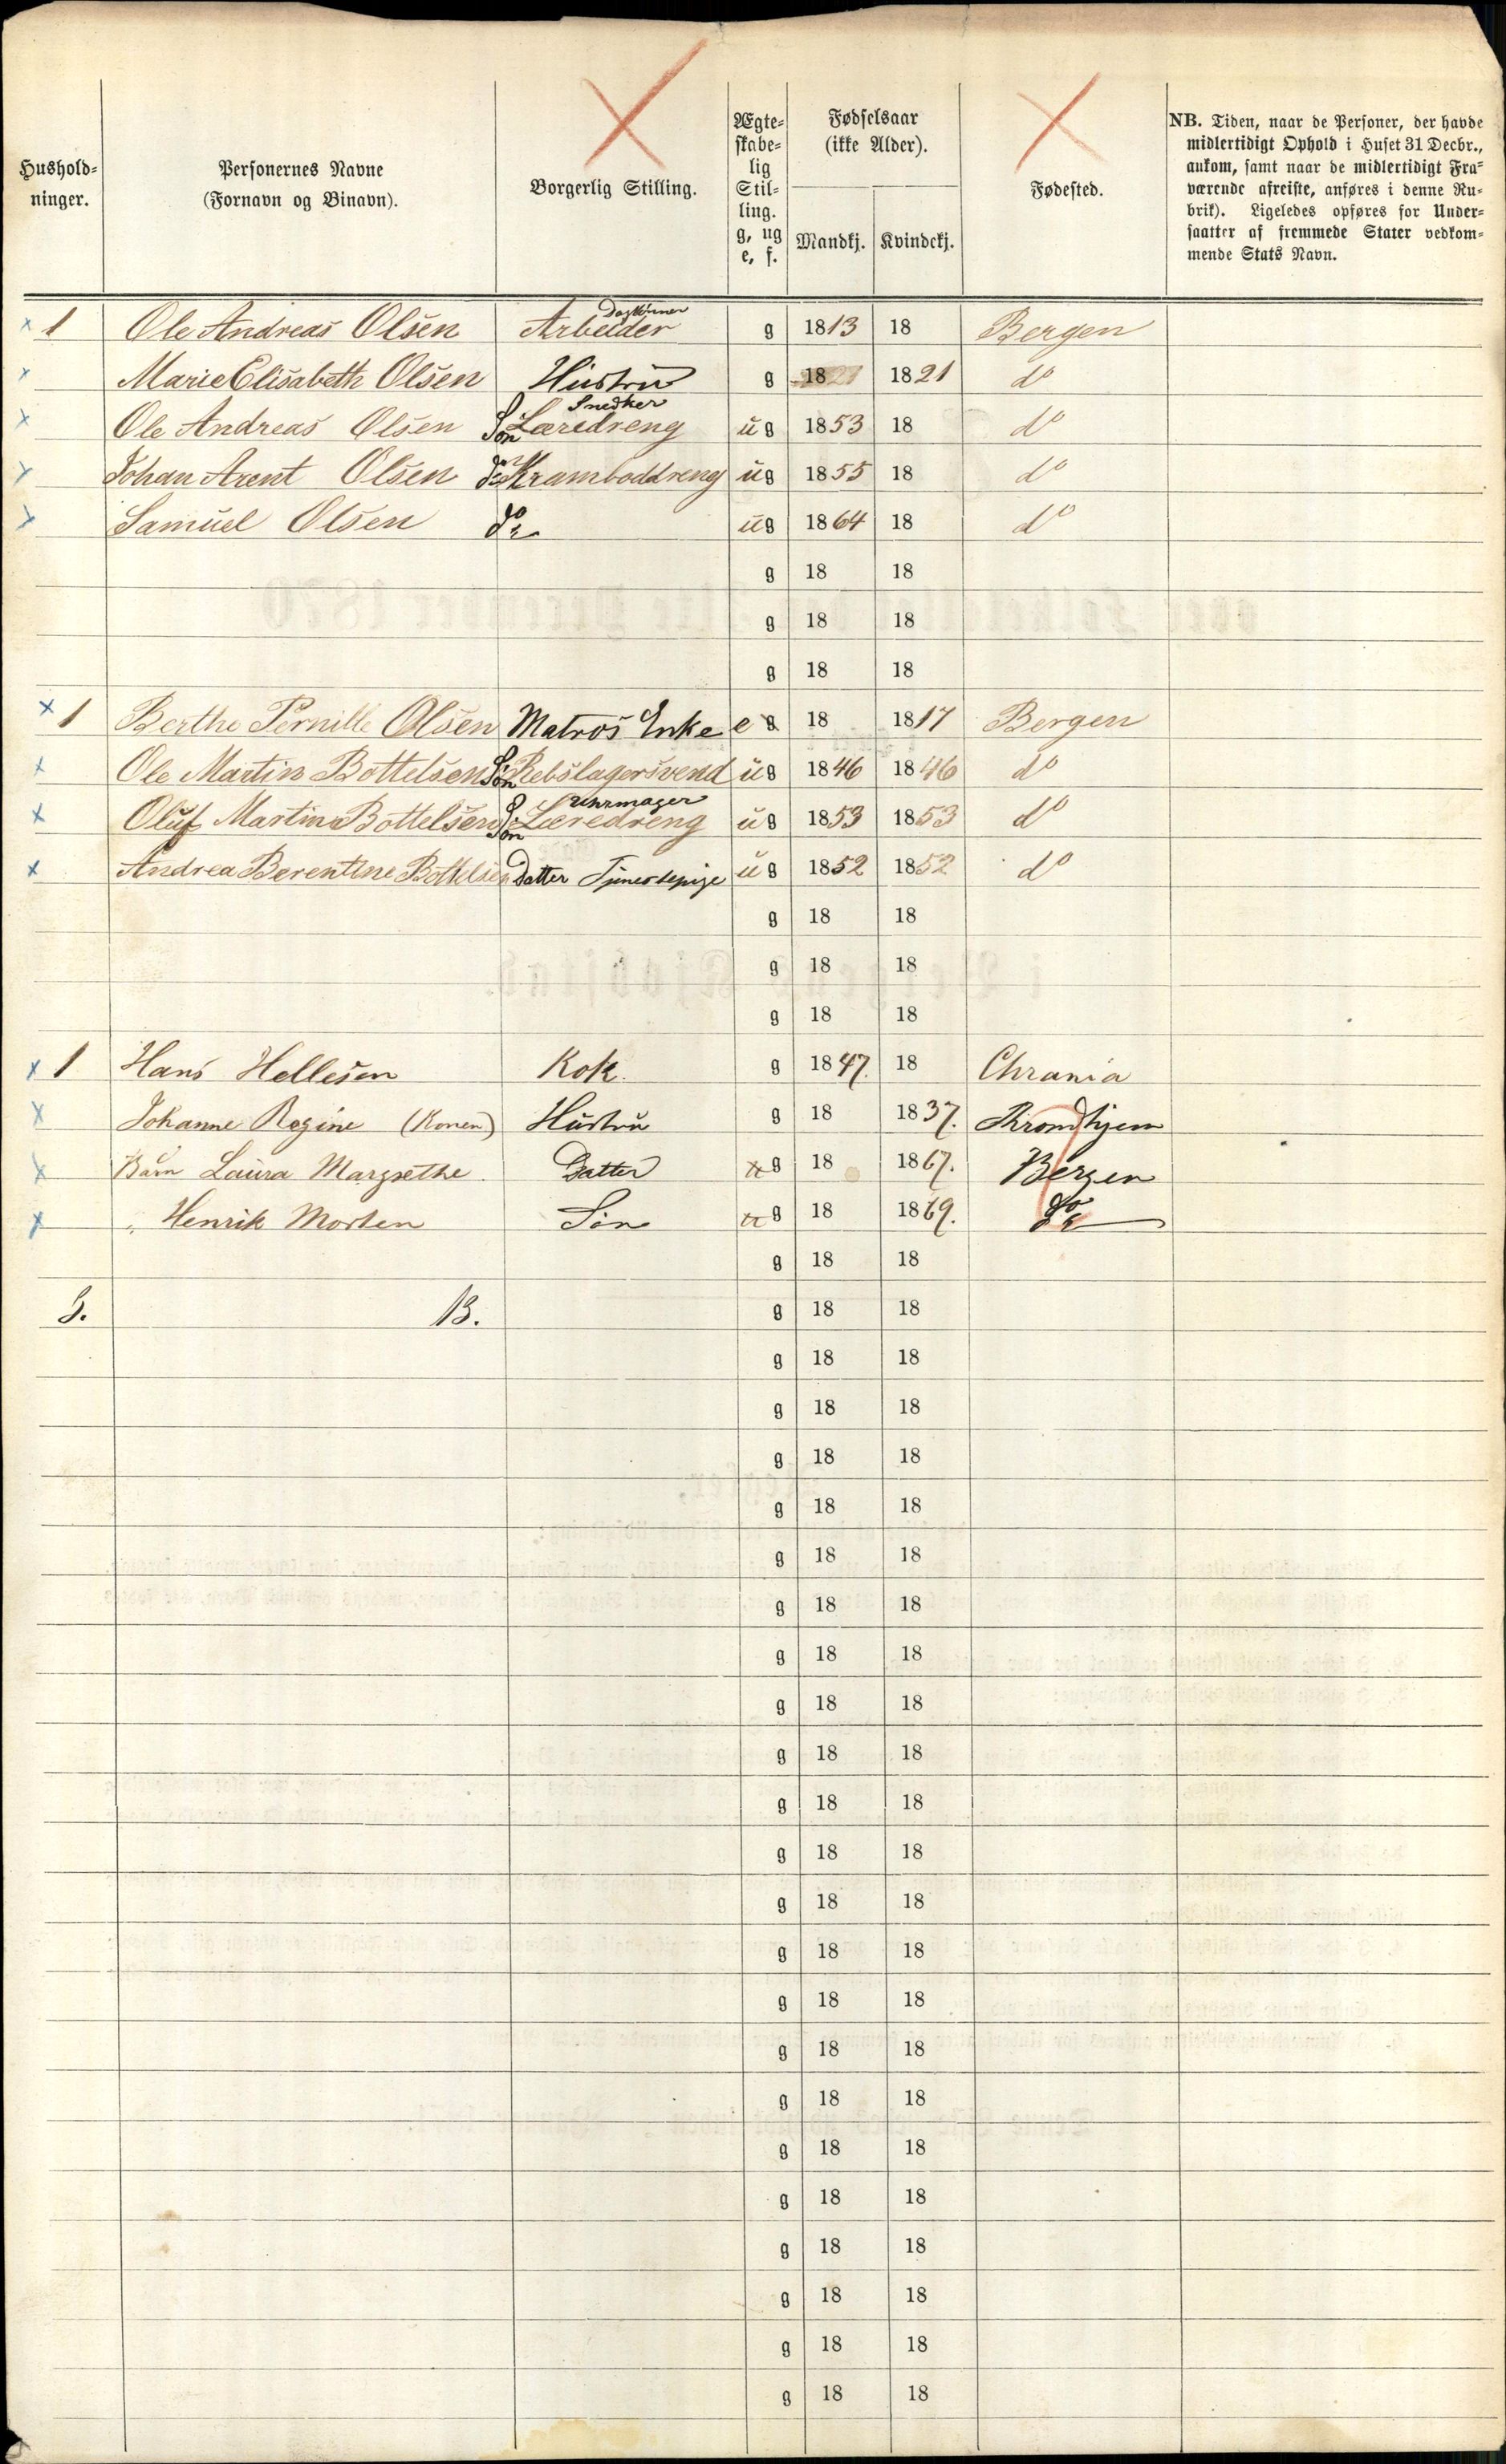 Hushold-
ninger.
Personernes Navne
(Fornavn og Binavn).
Borgerlig Stilling.
Ægte-
skabe-
lig
Stil-
ling.
g, ug
e, f.
Fødselsaar
(ikke Alder).
Mandkj. Kvindekj.
Fødested.
NB. Tiden, naar de Personer, der havde
midlertidigt Ophold i Huset 31 Decbr.,
ankom, samt naar de midlertidigt Fra-
værende afreiste, anføres i denne Ru-
brik). Ligeledes opføres for Under-
saatter af fremmede Stater vedkom-
mende Stats Navn.
Daglønner
x 1 Ole Andreas Olsen Arbeider g 1813 18 Bergen
x Marie Elisabeth Olsen Hustru g 18 1821 do
Snedker
x Ole Andreas Olsen Søn Læredreng ug 1853 18 do
x Johan Arent Olsen do Kramboddreng ug 1855 18 do
x Samuel Olsen do ug 1864 18 do
g 18 18
g 18 18
g 18 18
x 1 Berthe Pernille Olsen Matros Enke e g 18 1817 Bergen
x Ole Martin Bottelsen Søn Rebslagersvend ug 1846 1846 do
Uhrmager
x Oluf Martin Bottelsen Søn Læredreng ug 1853 1853 do
x Andrea Berentine Bottelsen Datter Tjenestepige ug 1852 1852 do
g 18 18
g 18 18
g 18 18
x 1 Hans Hellesen Kok. g 1847. 18 Chrania
x Johanne Regine (Konen) Hustru g 18 1837. Throndhjem
x Barn Laura Margrethe. Datter ug 18 1867. Bergen
x " Henrik Morten Søn ug 18 1869. do
g 18 18
3. 13. g 18 18
g 18 18
g 18 18
g 18 18
g 18 18
g 18 18
g 18 18
g 18 18
g 18 18
g 18 18
g 18 18
g 18 18
g 18 18
g 18 18
g 18 18
g 18 18
g 18 18
g 18 18
g 18 18
g 18 18
g 18 18
g 18 18
g 18 18